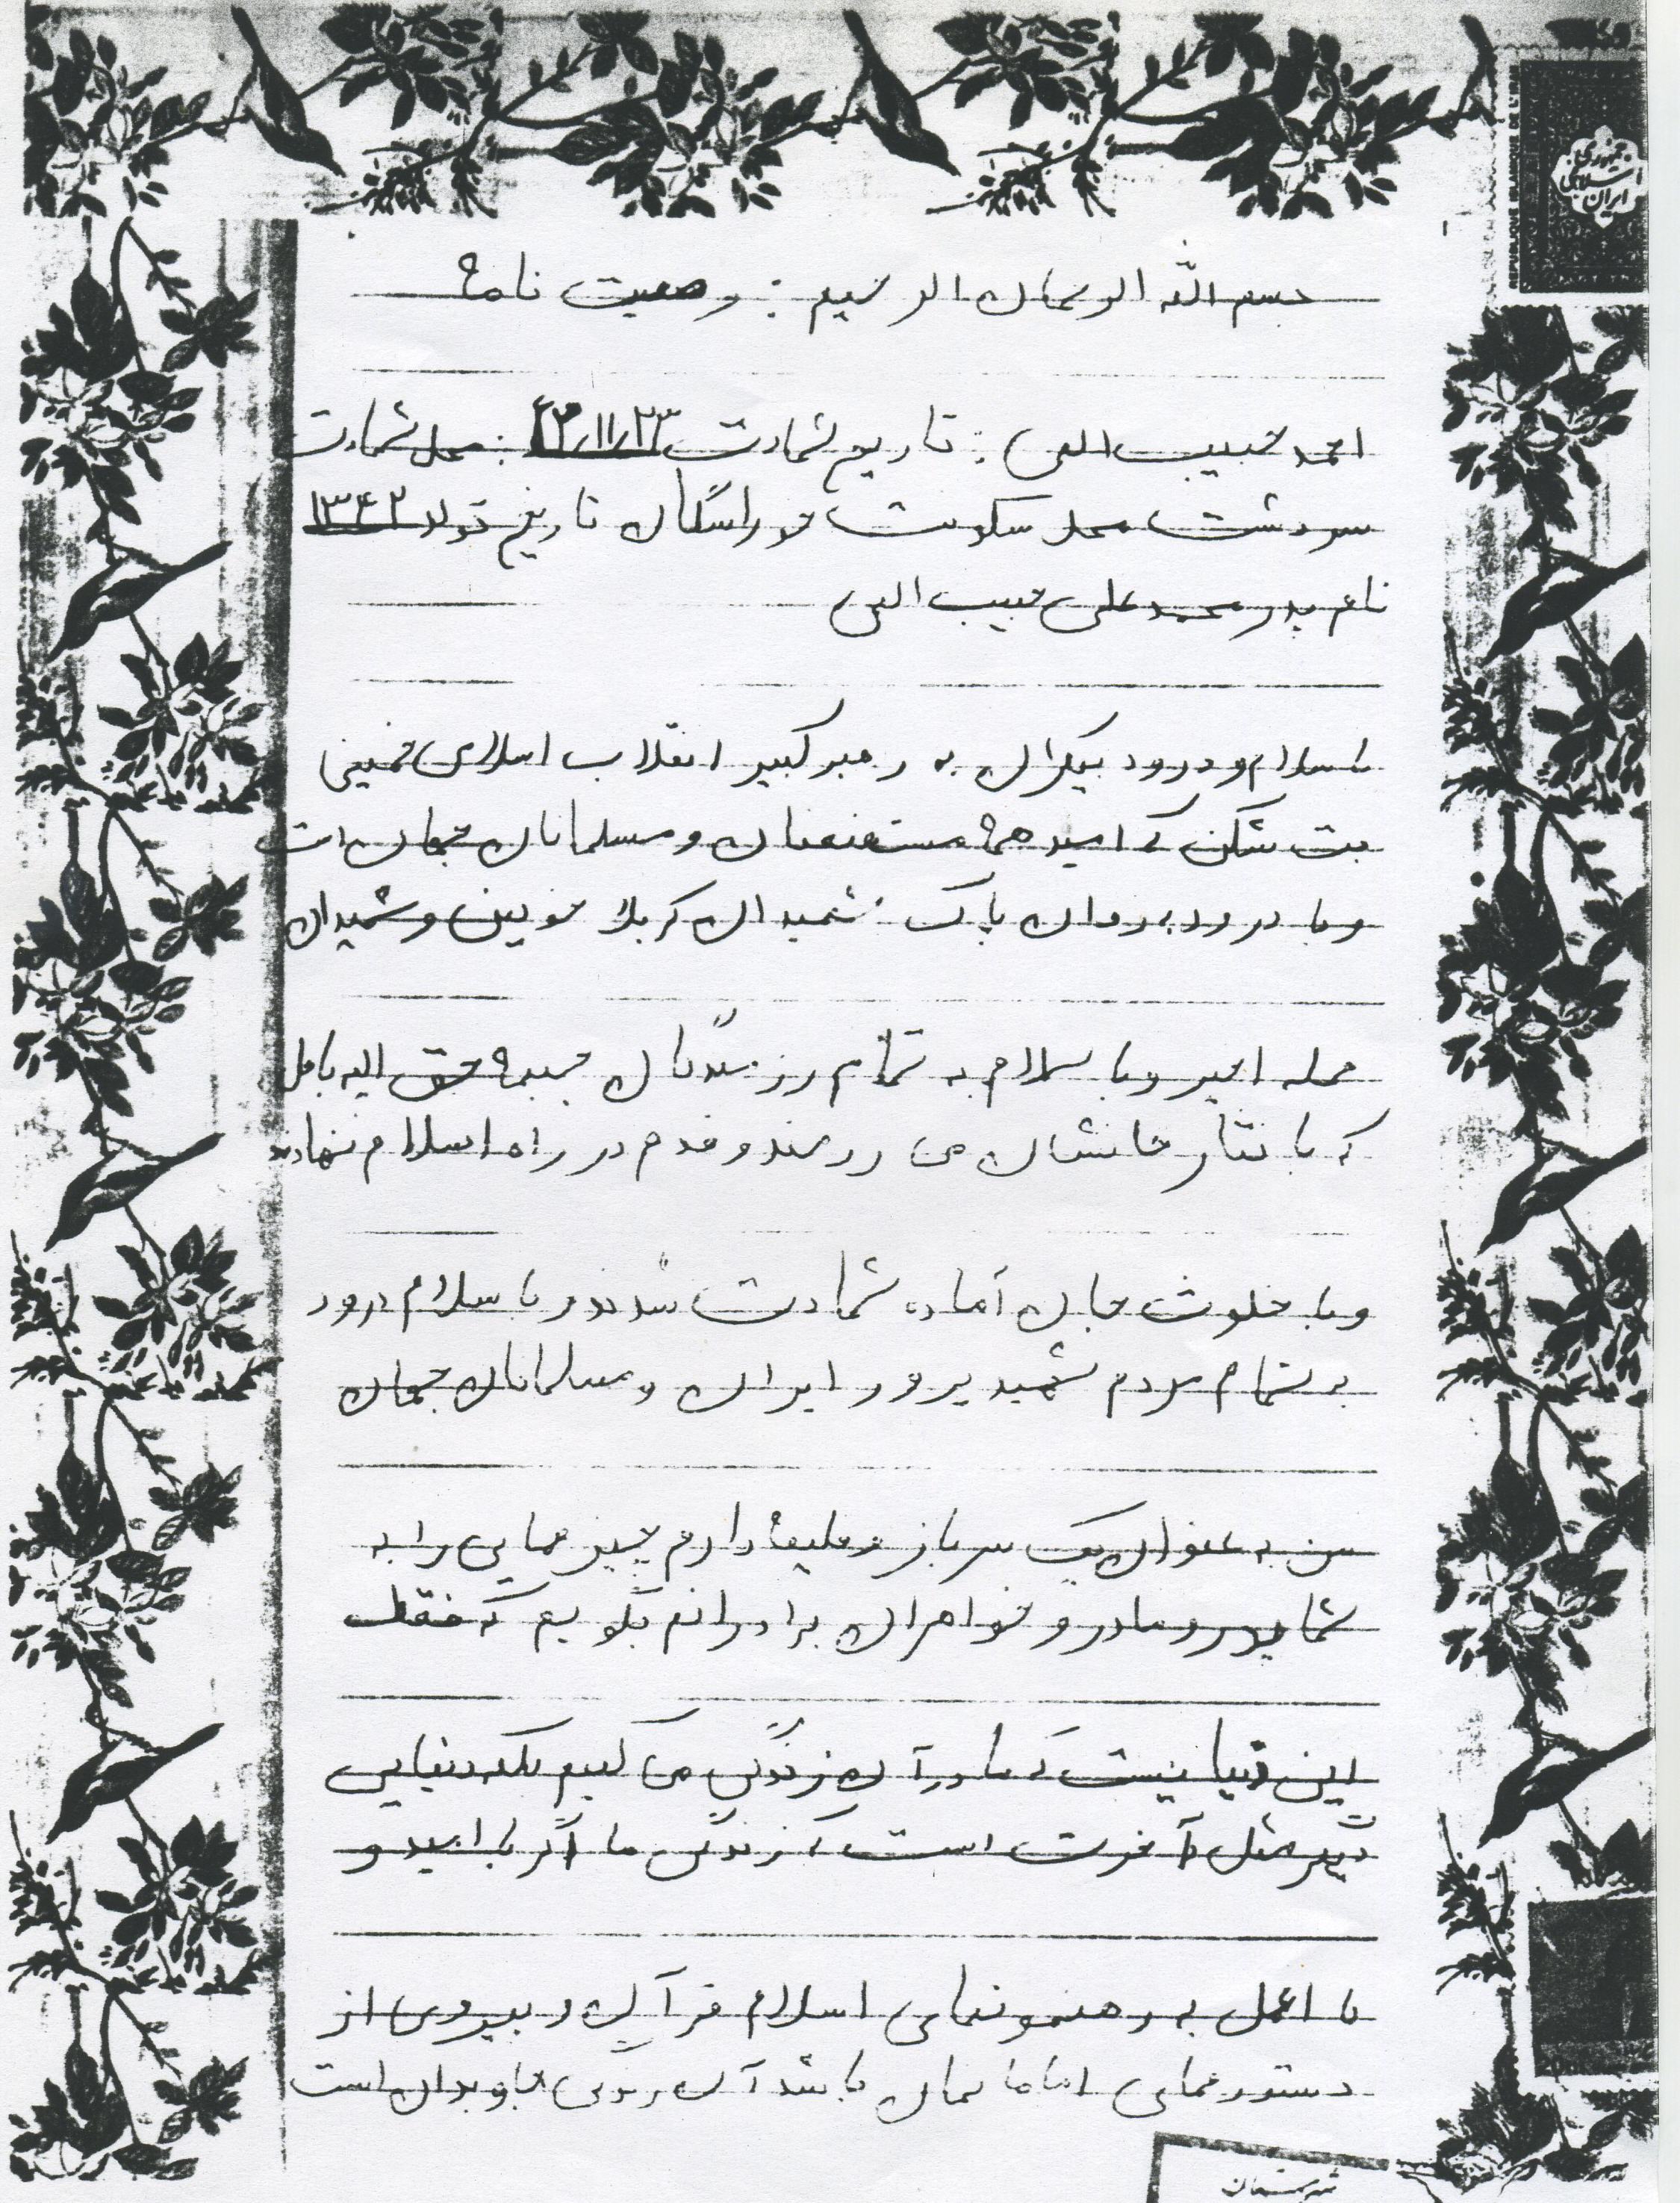 جمهوری
اسلامی
ایران
REPUBLIQUE ISLAMIQUE DE L'IRAN
بسم الله الرحمان الرحیم : وصیت نامه
احمد حبیب الهی : تاریخ شهادت ۶۲٫۱۱٫۲۳ : محل شهادت
سردشت محل سکونت خوراسگان تاریخ تولد ۱۳۴۲
نام پدر محمد علی حبیب الهی
با سلام و درود بیکران به رهبر کبیر انقلاب اسلامی خمینی
بت شکن که امید همه مستضعفان و مسلمانان جهان است
و با درود به روان پاک شهیدان کربلا خونین و شهیدان
حمله اخیر و با سلام به تمام رزمندگان جبهه حق الیه باطل
که با نثار جانشان می رزمند و قدم در راه اسلام نهادند
و با خلوث جان آماده شهادت شدند و با سلام درود
به تمام مردم شهید پرور ایران و مسلمانان جهان
من به عنوان یک سرباز وظیفه دارم چیز هایی را به
شما پدر و مادر و خواهران برادرانم بگویم که فقط
این دنیا نیست که ما در آن زندگی می کنیم بلکه دنیایی
دیگر مثل آخرت است که زندگی ما اگر با امید و
با عمل به رهنمونهای اسلام قرآن و پیروی از
دستورهای امامامان باشد آن زندگی جاویدان است